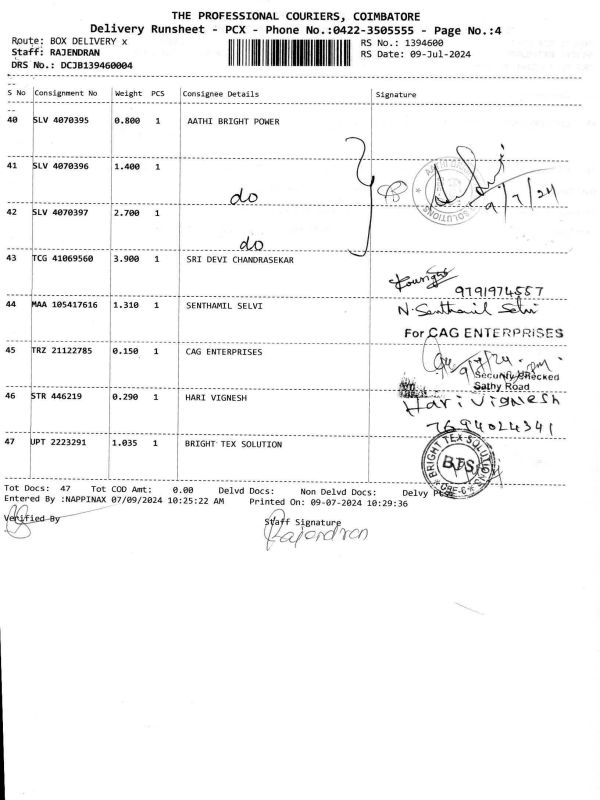 THE PROFESSIONAL COURIERS, COIMBATORE
Delivery Runsheet - PCX - Phone No.:0422-3505555 - Page No.:4
Route: BOX DELIVERY x RS No.: 1394600
Staff: RAJENDRAN RS Date: 09-Jul-2024
DRS No.: DCJB139460004
S No Consignment No Weight PCS Consignee Details Signature
40 SLV 4070395 0.800 1 AATHI BRIGHT POWER
41 SLV 4070396 1.400 1
do
9/7/24
SOLUTIONS
42 SLV 4070397 2.700 1
do
43 TCG 41069560 3.900 1 SRI DEVI CHANDRASEKAR
9791974557
44 MAA 105417616 1.310 1 SENTHAMIL SELVI N. Senthamil Selvi
For CAG ENTERPRISES
45 TRZ 21122785 0.150 1 CAG ENTERPRISES
9/7/24
Security Checked
Sathy Road
46 STR 446219 0.290 1 HARI VIGNESH Hari Vignesh
7694024341
47 UPT 2223291 1.035 1 BRIGHT TEX SOLUTION
BRIGHT TEX SOLUTIONS
BTS
CBE-6
Tot Docs: 47 Tot COD Amt: 0.00 Delvd Docs: Non Delvd Docs: Delvy
Entered By :NAPPINAX 07/09/2024 10:25:22 AM Printed On: 09-07-2024 10:29:36
Verified By Staff Signature
Rajendran